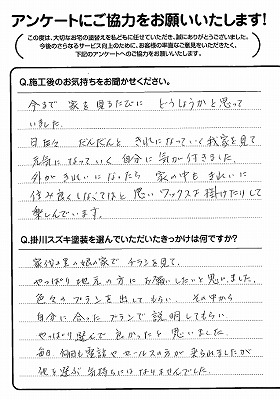 アンケートにご協力をお願いいたします!
この度は、大切なお宅の塗替えを私どもに任せていただき、誠にありがとうございました。
今後のさらなるサービス向上のために、お客様の率直なご意見をいただきたく、
下記のアンケートへのご協力をお願いいたします。
Q.施工後のお気持ちをお聞かせください。
今まで 家を見るたびに どうしようかと思って
いました。
日々 だんだんと きれいになっていく我家を見て
元気になっていく自分に気が付きました。
外がきれいになったら 家の中もきれいに
住み良くしなくてはと思いワックスを掛けたりして
楽しんでいます。
Q.掛川スズキ塗装を選んでいただいたきっかけは何ですか?
の娘の家で チラシを見て、
やっぱり地元の方に お願いしたいと思いました。
色々のプランを出してもらい その中から
自分に合ったプランで説明してもらい
やっぱり選んで良かったと思いました。
毎日 何回も電話やセールスの方が来られましたが
他を選ぶ気持ちにはなりませんでした。